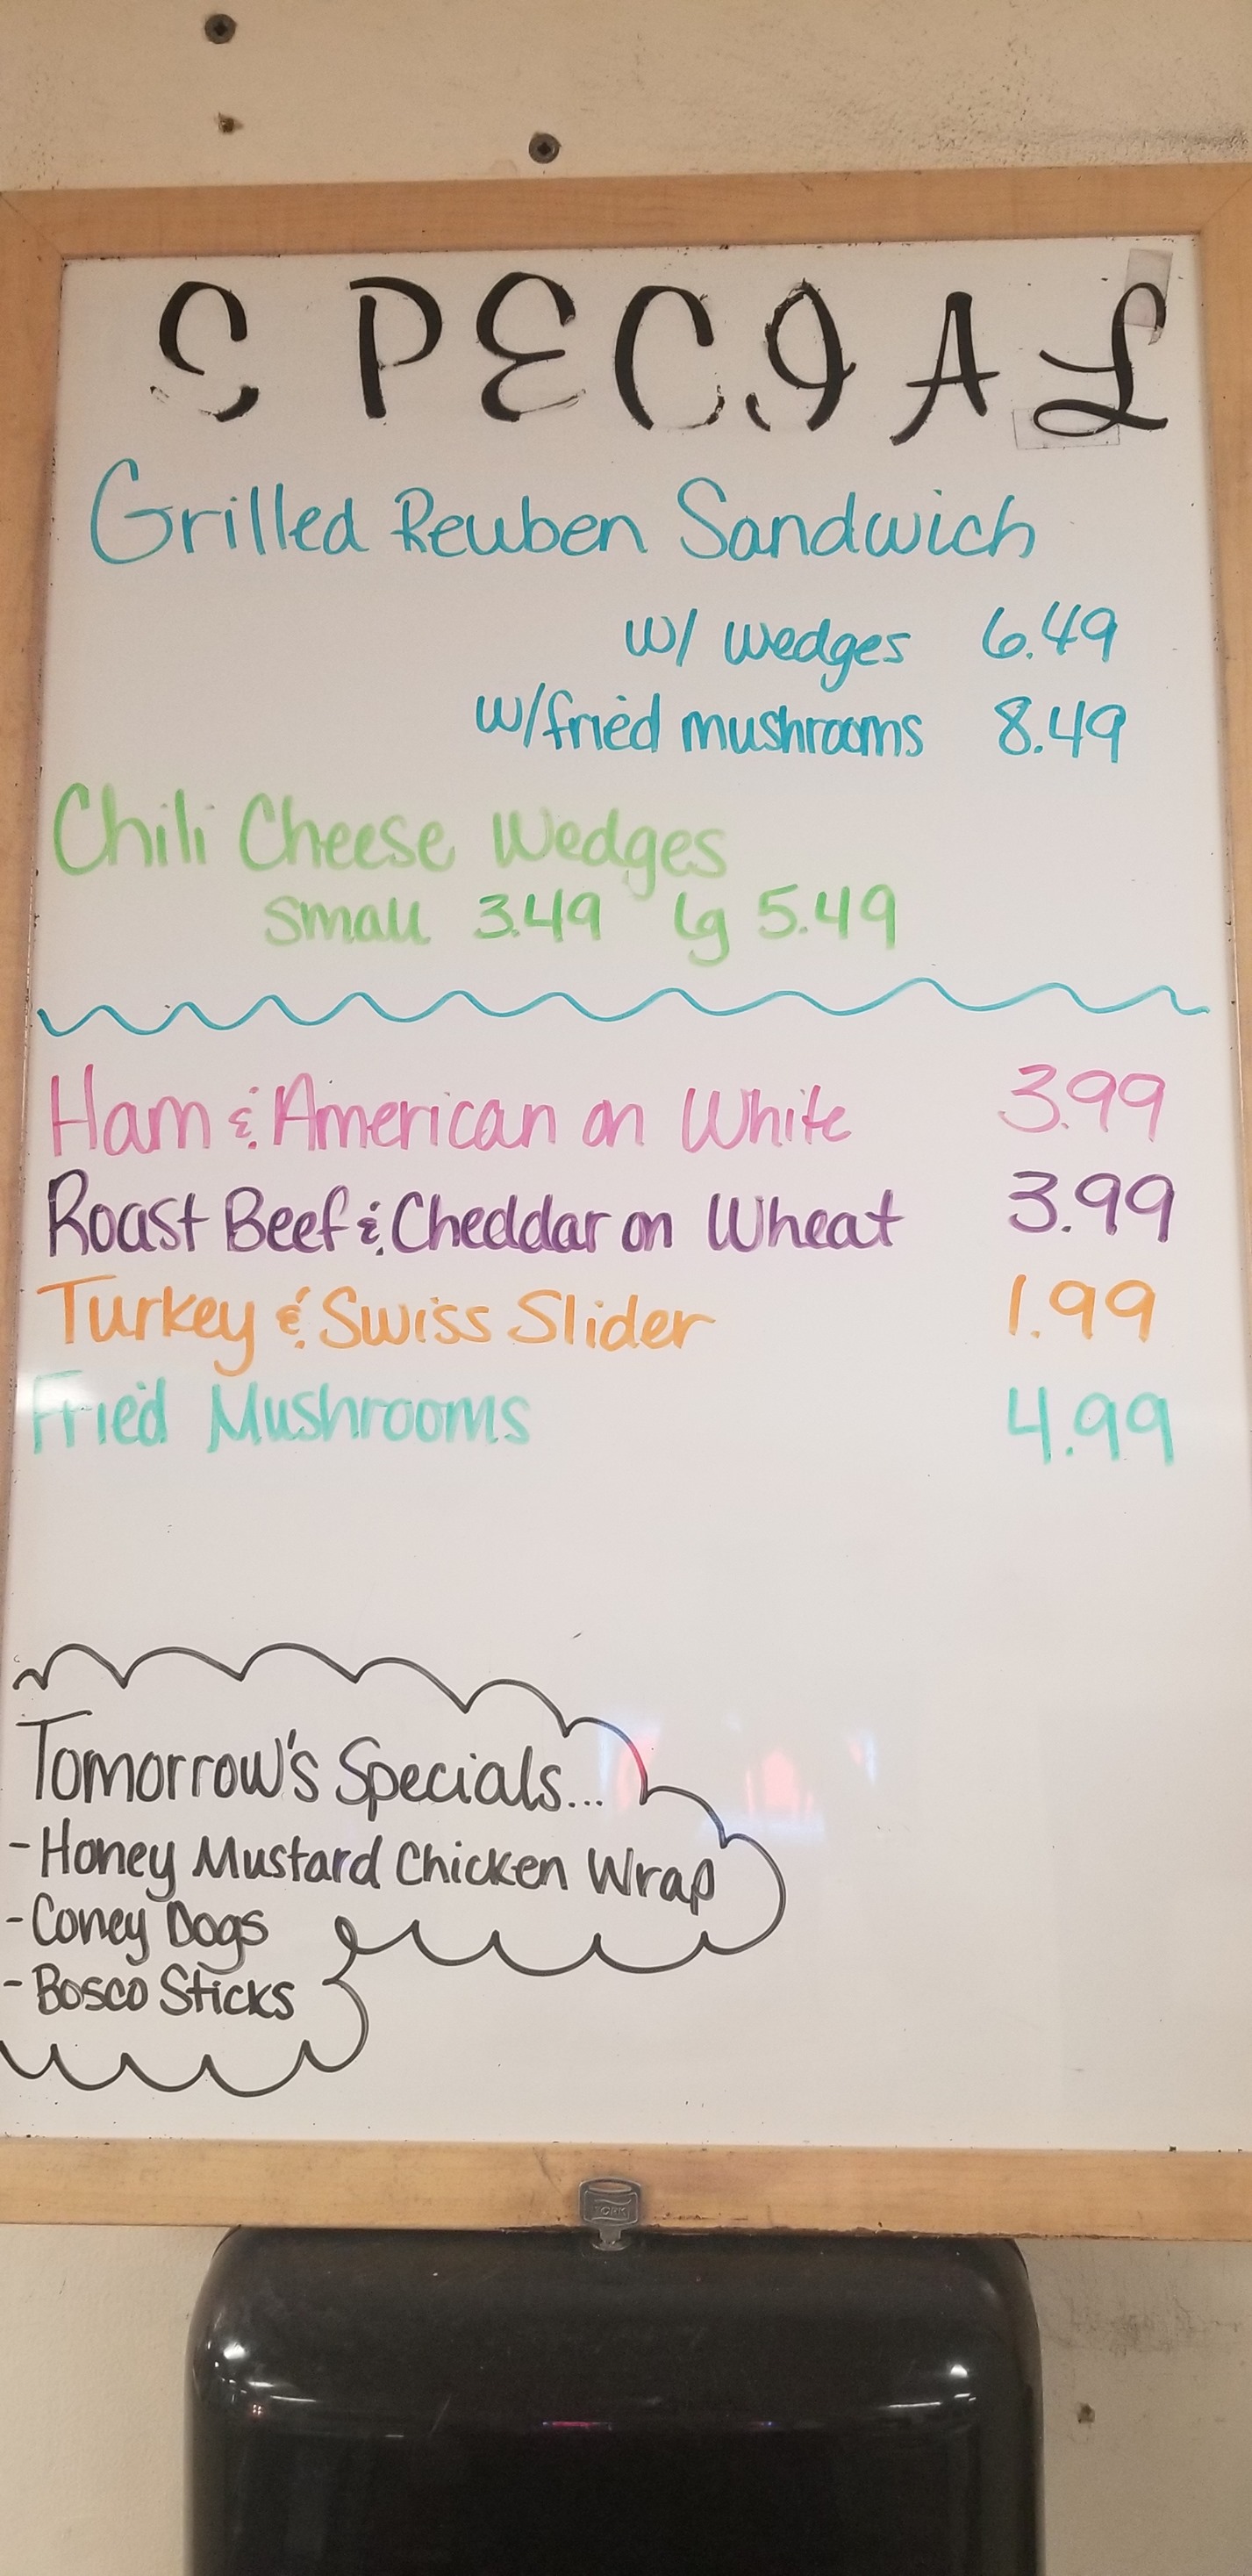 SPECIAL
Grilled Reuben Sandwich
w/ wedges 6.49
w/fried mushrooms 8.49
Chili Cheese Wedges
small 3.49 lg 5.49
Ham & American on White 3.99
Roast Beef & Cheddar on Wheat 3.99
Turkey & Swiss Slider 1.99
Fried Mushrooms 4.99
Tomorrow's Specials...
- Honey Mustard Chicken Wrap
- Coney Dogs
- Bosco Sticks
TORK